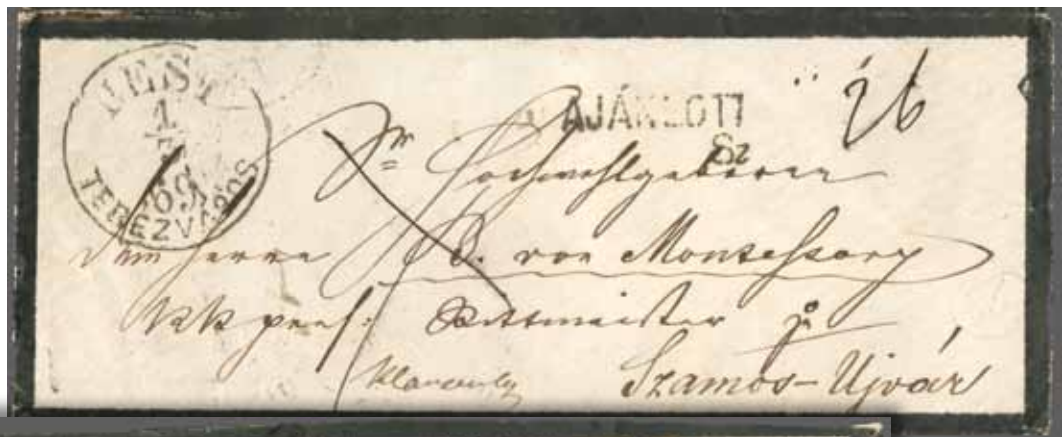 PEST
1
69
TEREZVÁROS
AJÁNLOTT
Sz
26
Sr Hochwohlgeboren
dem Herrn B. von Montessory
KK pens: Rittmeister zu
Szamos-Ujvár